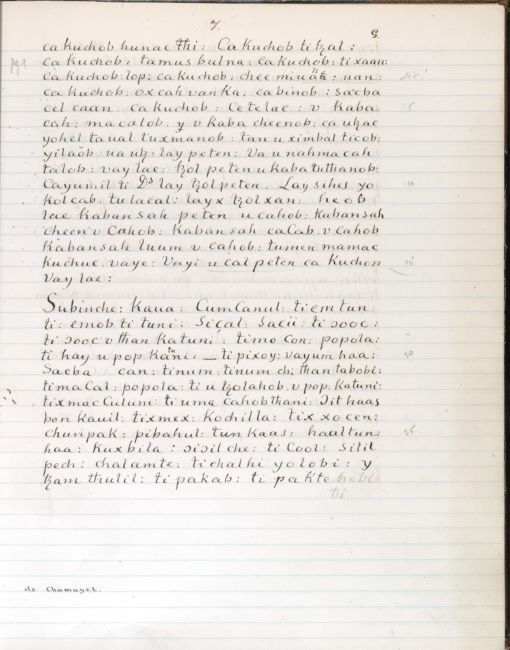 7.
G.
ca Kuchob hunac thi: Ca Kuchob ti ꜩal:
ca Kuchob: tamus bulna: ca Kuchob: ti xaan:
ca Kuchob: lop: ca Kuchob: chee miuan: uan:
ca Kuchob: oxcah uanKa: ca binob: sacba
cel caan ca Kuchob: Cetelac: v Kaba
cah: macalob: y v Kaba cheenob: ca uꜩac
yohel taual tuxmanob: tan u ximbal ticob:
yilaob ua uꜩ: lay peten: Va u nahma cah
talob: vay lae: ꜩol peten u Kaba tuthanob:
Cayumil ti Ds lay ꜩol peten. Lay sihes yo
Kol cab. tulacal: lay x ꜩolxan: heob
lae Kabansah peten u cahob: Kabansah
cheen v Cahob: Kabansah caCab. v Cahob
Kabansah luum v cahob: tumen mamac
Kuchuc vaye: Vayi u cal peten ca Kuchon
Vay lae:
Subinche: Kaua: CumCanul: ti em tun:
ti: emob ti tuni: Siçal: Sacii: ti ɔooc:
ti ɔooc v than Katuni: timo Con: popola:
ti hay u pop Kanin: — ti pixoy: vayum haa:
Sacba can: tinum: tinum chi than tabobi:
timaCal: popola: ti u ꜩolahob. v pop: Katuni:
tixmac Culum: ti uma cahob thani: Ɔit haas
bon Kauil: tixmex: Kochilla: tix xocen:
chunpak: pibahul: tun Kaas: haaltun:
haa: Kuxbila: ɔiɔilche: ti Cool: Sitil
pech: chalamte: ti chalhi yolobi: y
ꜩam thulil: ti pakab: ti pakte
de Chumayel.